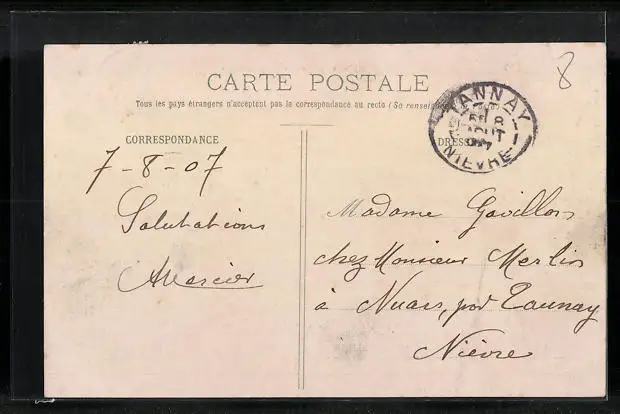 8
CARTE POSTALE
Tous les pays étrangers n'acceptent pas la correspondance au recto (Se renseig
TANNAY
8
AOUT
07
NIEVRE
CORRESPONDANCE
DRESSE
7-8-07
Salutations
AMercier
Madame Gavillon
chez Monsieur Merlin
à Nuars, par Tannay
Nièvre